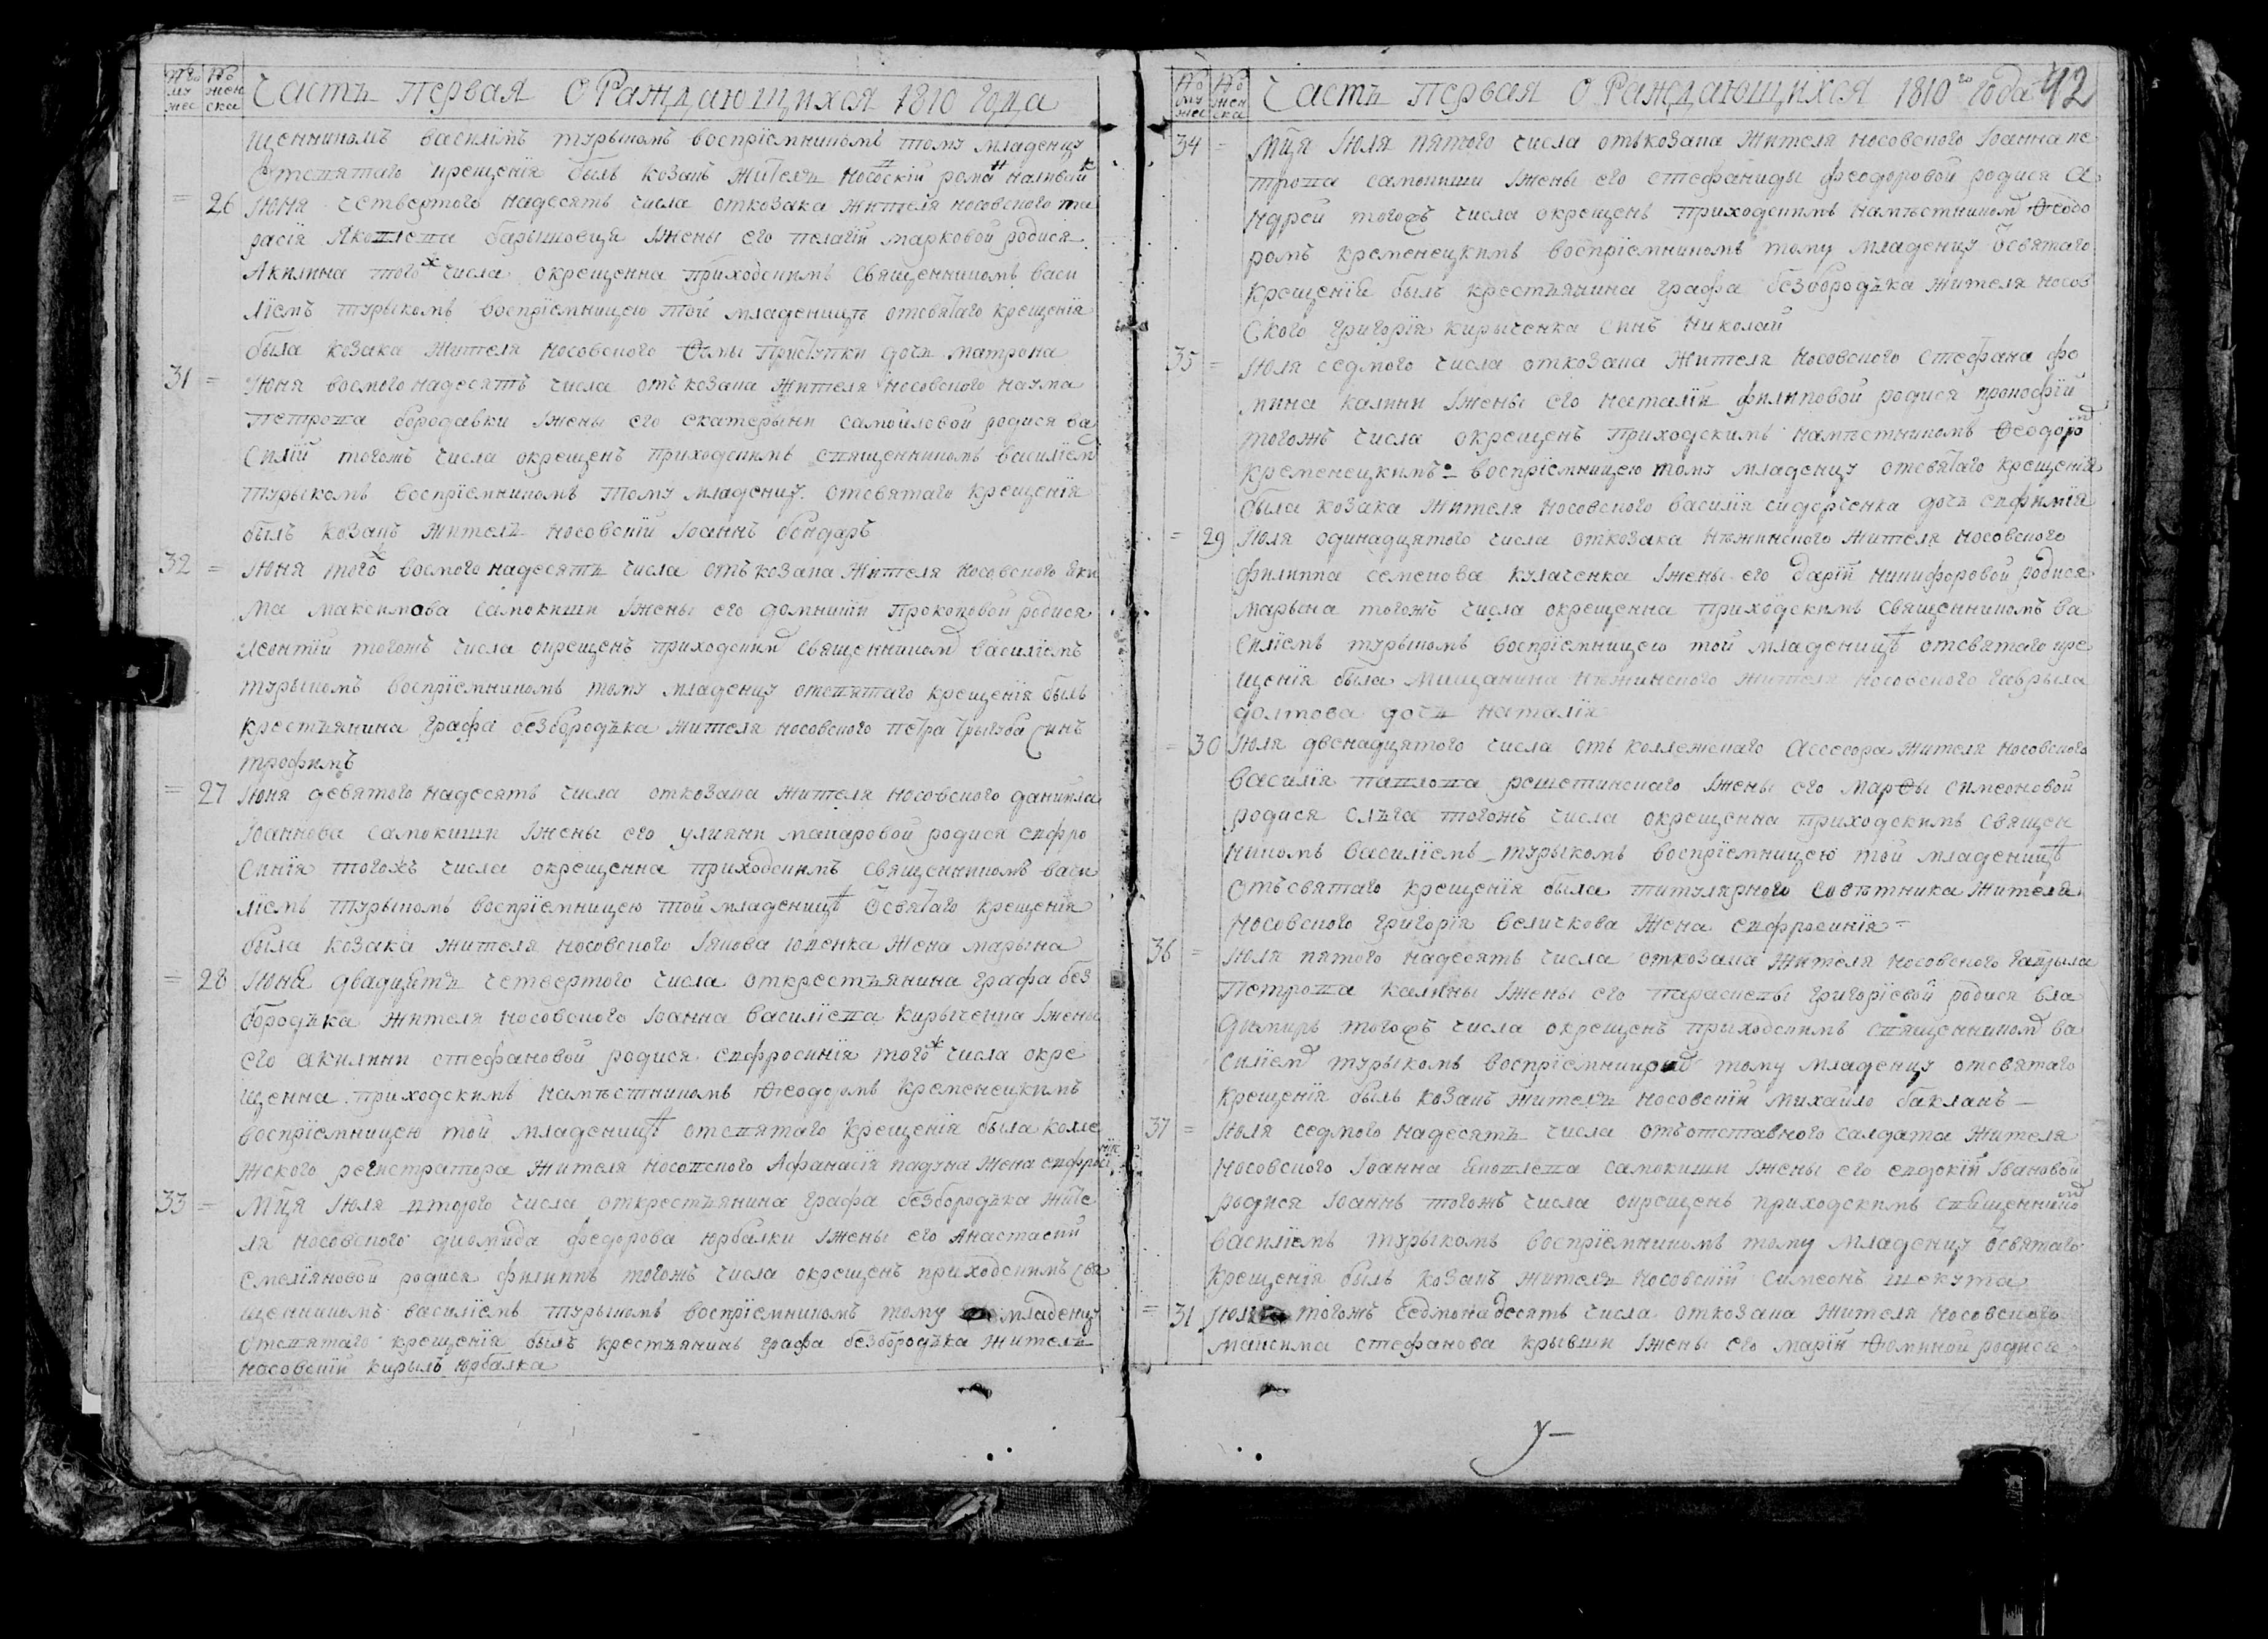 № му жес
№ жен ска
Часть первая О Раждающихся 1810 года
щенникомъ василіемъ турыкомъ воспріемникомъ тому младенцу
Отсвятаго крещенія былъ козакъ житель Носовскій романъ наливайк
= 26 Июня четвертого надесять числа откозака жителя носовского та
расія Яковлева барышовця Iжены его пелагіи марковой родися
Акилина того ж числа окрещенна приходскимъ священникомъ васи
ліемъ турыкомъ воспріемницею той младеницѣ отсвятаго крещенія
была козака жителя носовского Ѳомы Приступки дочь матрона
31 = Июня восмого надесять числа отъ козака жителя носовского наума
петрова бородавки Iжены его екатерыни самойловой родися ва
силій тогожъ числа окрещенъ приходскимъ священникомъ василіем
турыкомъ воспріемникомъ тому младенцу отсвятаго крещенія
былъ козакъ житель носовскій Iоаннъ бондаръ
32 = Июня того ж восмого надесять числа отъ козака жителя носовского яки
ма максимова самокиши Iжены его домникіи прокоповой родися
леонтій тогожъ числа окрещенъ приходским священником василіемъ
турыкомъ воспріемникомъ тому младенцу отсвятаго крещенія былъ
крестьянина графа безбородъка жителя носовского петра трыгуба синъ
трофимъ
= 27 Июня девятого надесять числа откозака жителя носовского даниила
Iоаннова самокиши Iжены его улияни макаровой родися евфро
синія тогожъ числа окрещенна приходскимъ священникомъ васи
ліемъ турыкомъ воспріемницею той младеницѣ отсвятаго крещенія
была козака жителя носовского Iякова юденка жена марына
= 28 Июня двадцять четвертого числа открестьянина графа без
бородъка жителя носовского Iоанна василіева кирыченка Iжены
его акилини стефановой родися евфросинія того ж числа окре
щенна приходскимъ намѣстникомъ Ѳеодоромъ кременецкимъ
воспріемницею той младеницѣ отсвятаго крещенія была колле
жского регистратора жителя носовского Афанасія падуна жена евфросинія
33 = Мця Iюля второго числа открестьянина графа безбородъка жите
ля носовского диомида федорова юрбалки Iжены его Анастасіи
емеліяновой родися филиппъ тогожъ числа окрещенъ приходскимъ свя
щенникомъ василіемъ турыкомъ воспріемникомъ тому младенцу
отсвятаго крещенія былъ крестьянинъ графа безбородъка житель
носовскій кирылъ юрбалка
№ му жес
№ жен ска
Часть первая О Раждающихся 1810го года 42
34 = Мця Iюля пятого числа отъкозака жителя носовского Iоанна пе
трова самокиши Iжены его стефаниды феодоровой родися А
ндрей тогожъ числа окрещенъ приходскимъ намѣстником Ѳеодо
ромъ кременецкимъ воспріемникомъ тому младенцу отсвятаго
крещенія былъ крестьянина графа безбородъка жителя носов
ского григорія кирыченка синъ николай
35 = Iюля седмого числа откозака жителя носовского стефана фо
мина калини Iжены его наталіи филиповой родися прокофій
тогожъ числа окрещенъ приходскимъ намѣстникомъ Ѳеодором
кременецкимъ воспріемницею тому младенцу отсвятаго крещенія
была козака жителя носовского василія сидорченка дочь евфимія
= 29 Iюля одинадцятого числа откозака нѣжинского жителя носовского
филиппа семенова кулаченка Iжены его дарій никифоровой родися
марына тогожъ числа окрещенна приходскимъ священникомъ ва
силіемъ турыкомъ воспріемницею той младеницѣ отсвятаго кре
щенія была мищанина нѣжинского жителя носовского гаврыла
долтова дочь наталія
= 30 Iюля двенадцятого числа отъ коллежскаго Ассесора жителя носовского
василія павлова решетинскаго Iжены его марѲы симеоновой
родися олъга тогожъ числа окрещенна приходскимъ священ
никомъ василіемъ турыкомъ воспріемницею той младеницѣ
отъсвятаго крещенія была титулярного совѣтника жителя
носовского григорія величкова жена евфросинія
36 = Iюля пятого надесять числа откозака жителя носовского гаврыла
петрова калины Iжены его параскевы григоріевой родися вла
димиръ тогожъ числа окрещенъ приходскимъ священником ва
силіем турыкомъ тому младенцу отсвятаго
крещенія былъ козакъ житель носовскій михайло бакланъ
37 = Iюля седмого надесять числа отъотставного салдата жителя
носовского Iоанна Яковлева самокиши Iжены его евдокіи Iвановой
родися Iоаннъ тогожъ числа окрещенъ приходскимъ священником
василіемъ турыкомъ воспріемникомъ тому младенцу отсвятаго
крещенія былъ козакъ житель носовскій симеонъ шекута
= 31 Iюля тогожъ седмонадесять числа откозака жителя носовского
максима стефанова крывши Iжены его маріи Ѳоминой родися